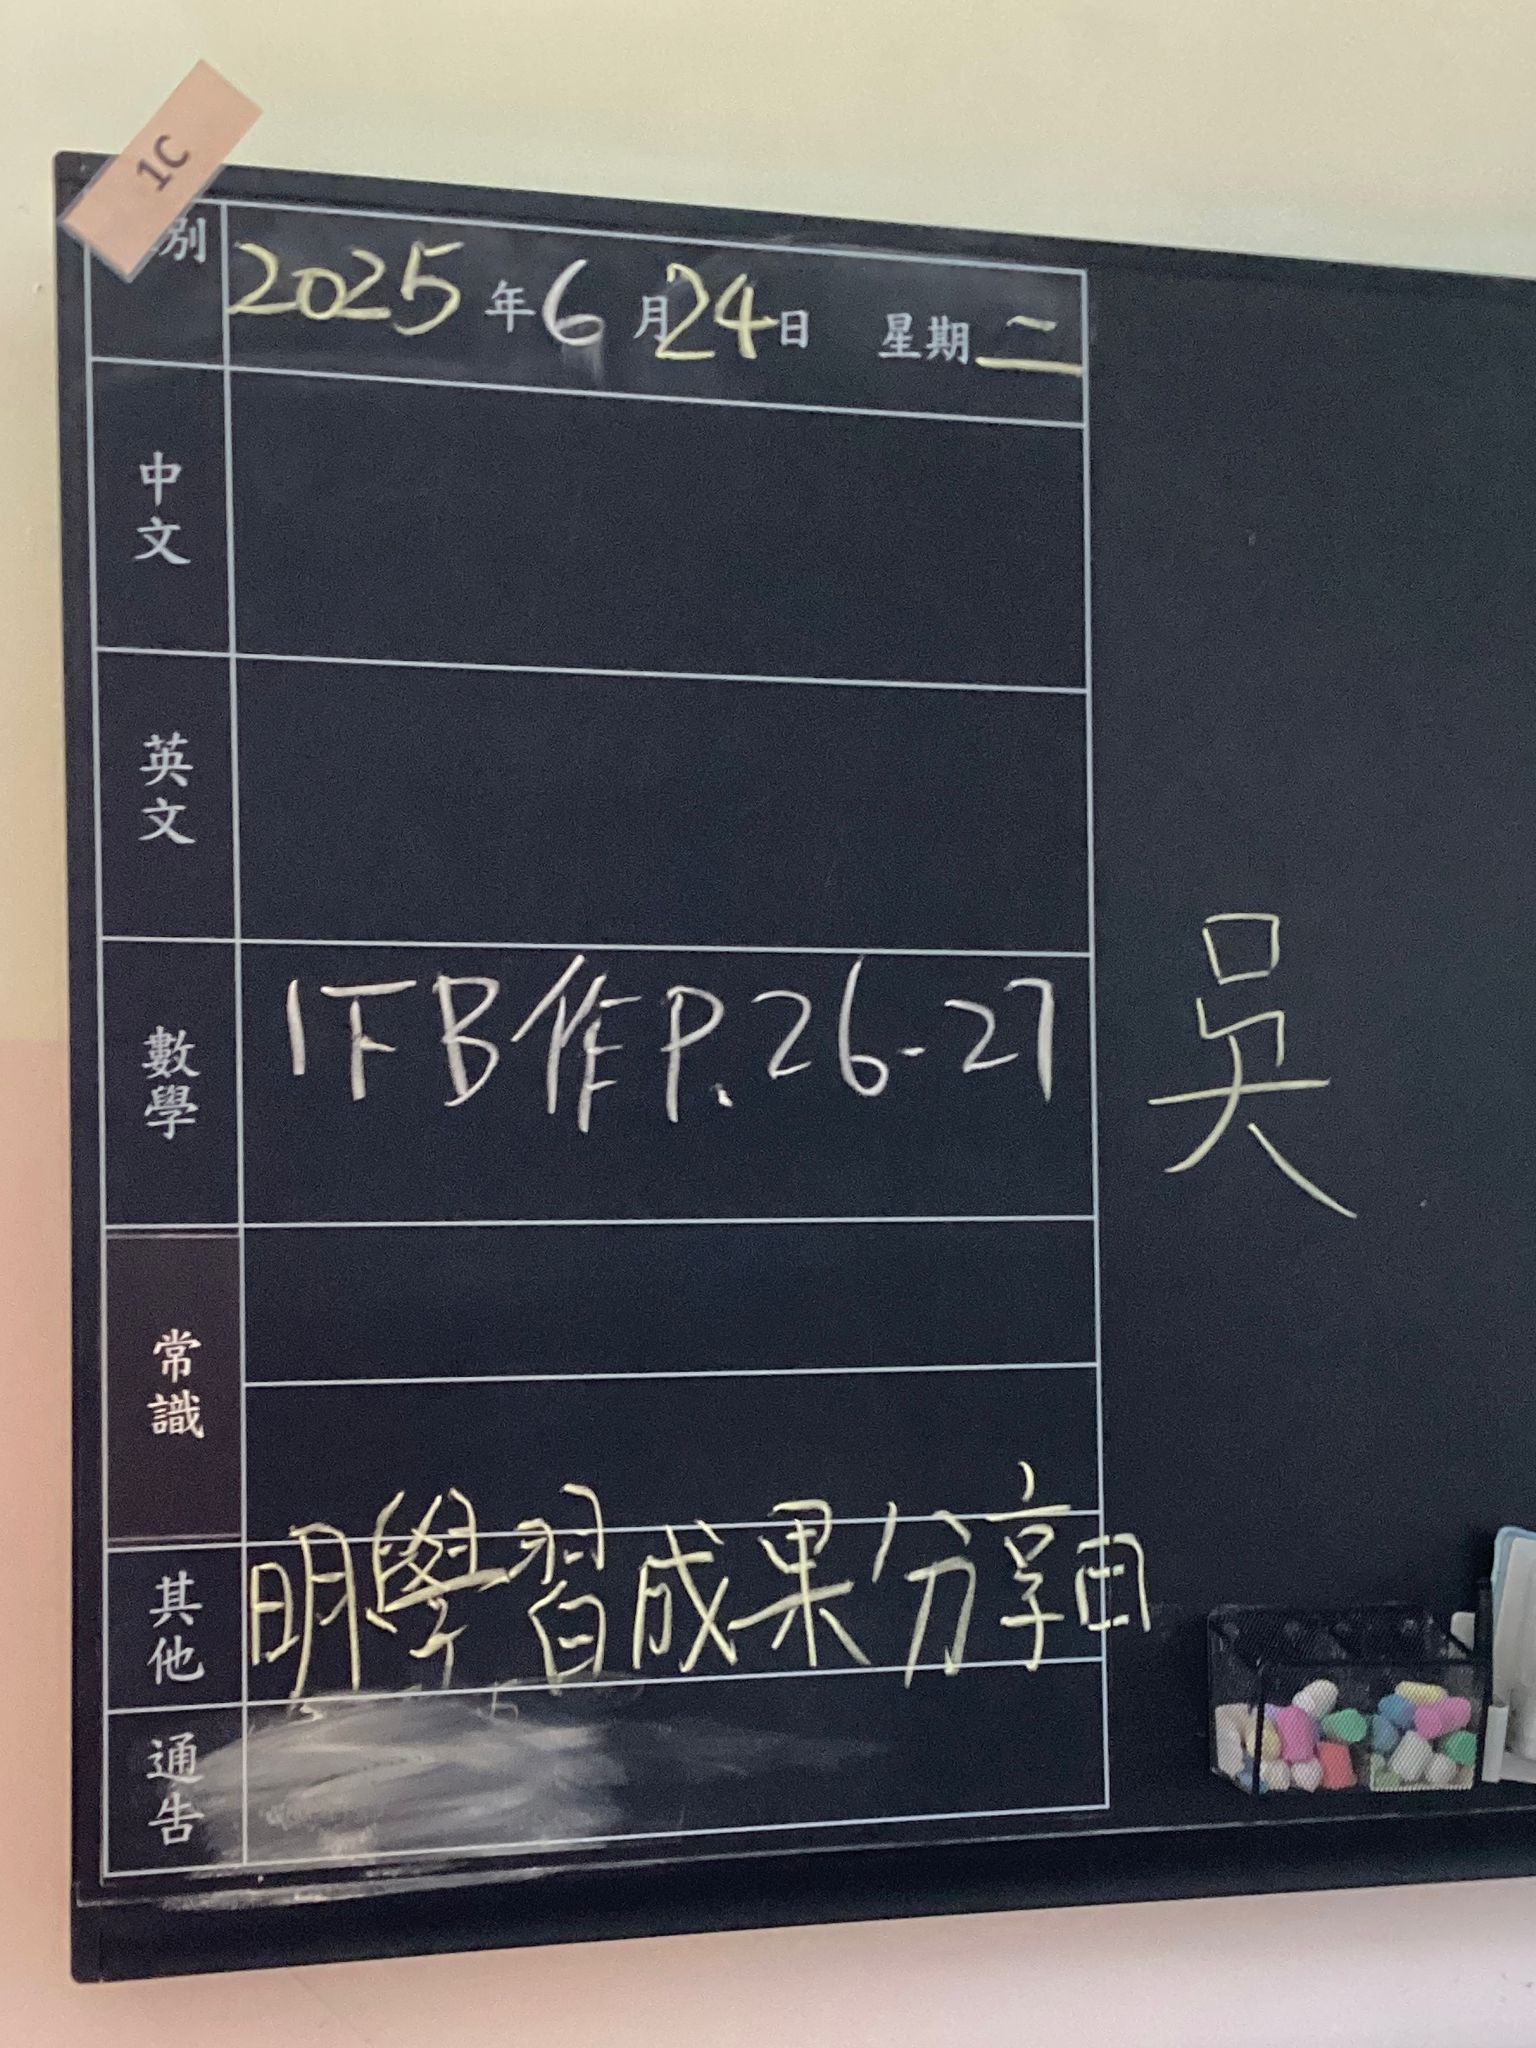 1C
別
2025年6月24日 星期二
中文
英文
數學
1下B作P.26-27
吳
常識
其他
明學習成果分享日
通告